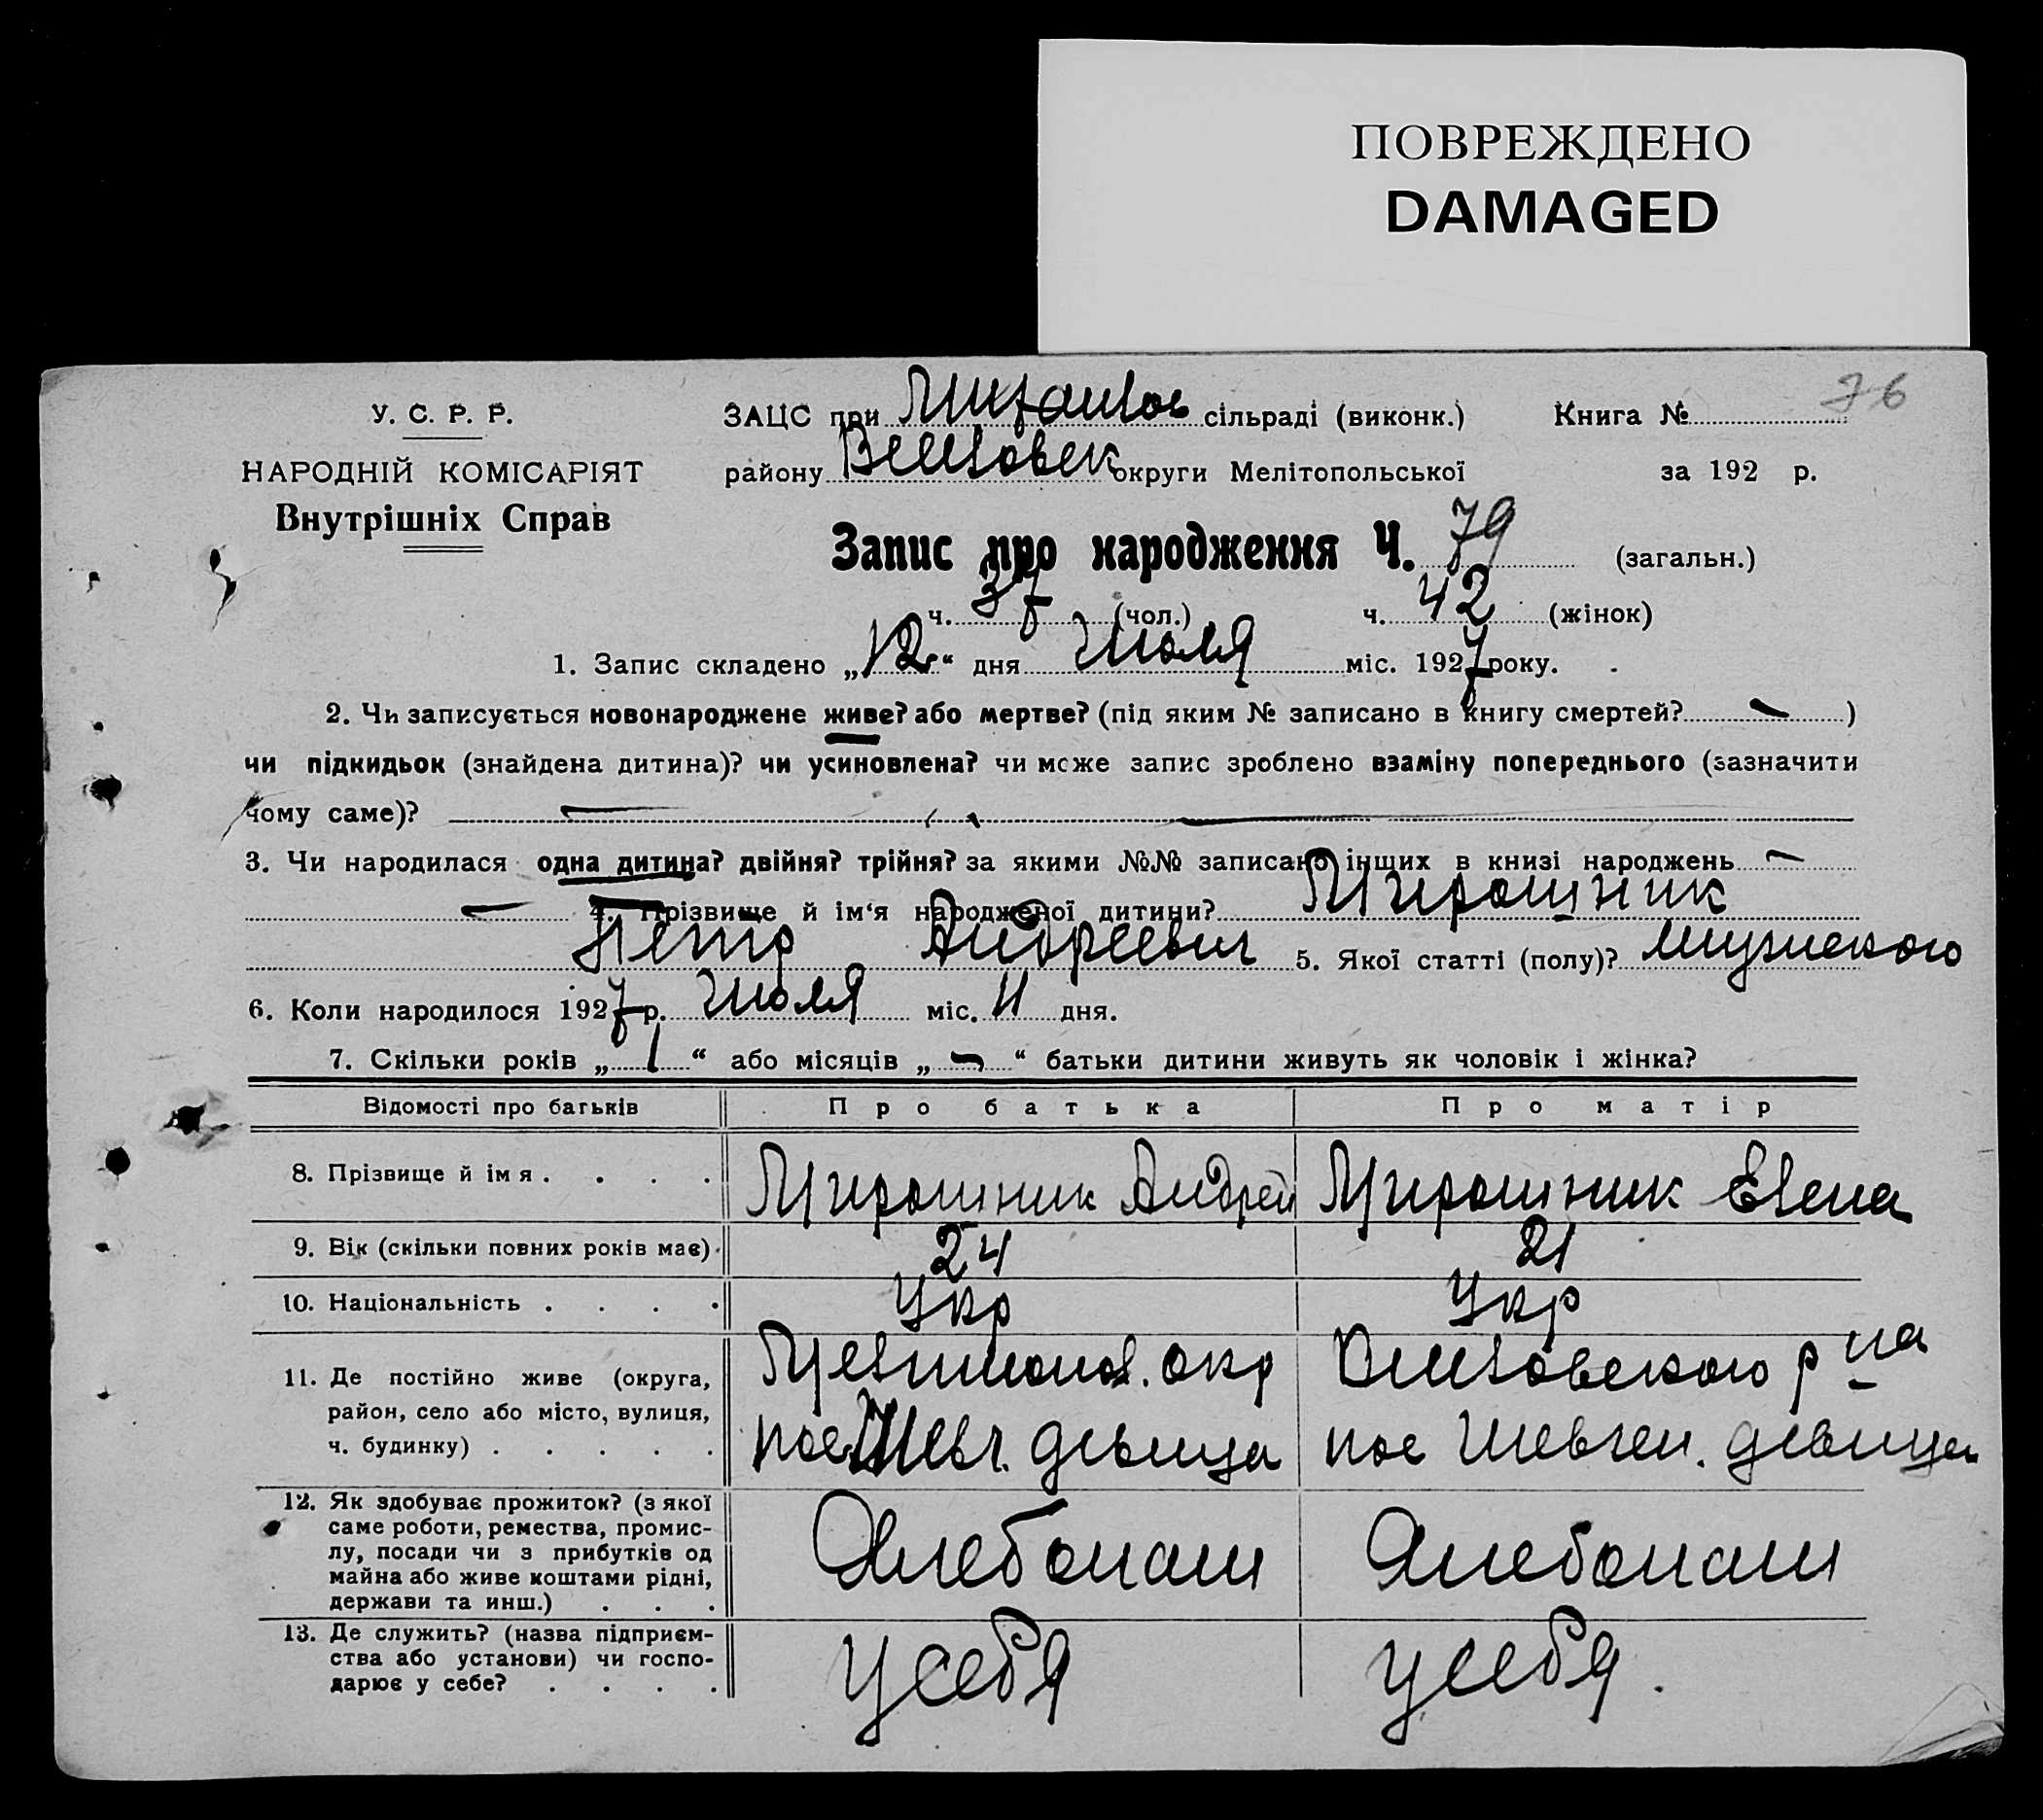 ПОВРЕЖДЕНО
DAMAGED
76
У. С. Р. Р.
НАРОДНІЙ КОМІСАРІЯТ
Внутрішніх Справ
ЗАЦС при сільраді (виконк.) Книга №
району округи Мелітопольської за 192 р.
Запис про народження Ч. 79 (загальн.)
ч. 37 (чол.) ч. 42 (жінок)
1. Запис складено „12“ дня Июля міс. 1927 року.
2. Чи записується новонароджене живе? або мертве? (під яким № записано в книгу смертей? — )
чи підкидьок (знайдена дитина)? чи усиновлена? чи може запис зроблено взаміну попереднього (зазначити
чому саме)? —
3. Чи народилася одна дитина? двійня? трійня? за якими №№ записано інших в книзі народжень —
— 4. Прізвище й ім‘я народженої дитини? Мирошник
Петр Андреевич 5. Якої статті (полу)? мужского
6. Коли народилося 1927 р. Июля міс. 11 дня.
7. Скільки років „1“ або місяців „—“ батьки дитини живуть як чоловік і жінка?
Відомості про батьків Про батька Про матір
8. Прізвище й ім я . . . . Мирошник Андрей Мирошник Елена
9. Вік (скільки повних років має) 24 21
10. Національність . . . . Укр Укр
11. Де постійно живе (округа,
район, село або місто, вулиця,
ч. будинку) . . . . .
окр р на
пос Шевч. пос Шевчен.
12. Як здобуває прожиток? (з якої
саме роботи, ремества, промис-
лу, посади чи з прибутків од
майна або живе коштами рідні,
держави та инш.) . . .
Хлебопаш Хлебопаш
13. Де служить? (назва підприєм-
ства або установи) чи госпо-
дарює у себе? . . . .
у себя у себя.